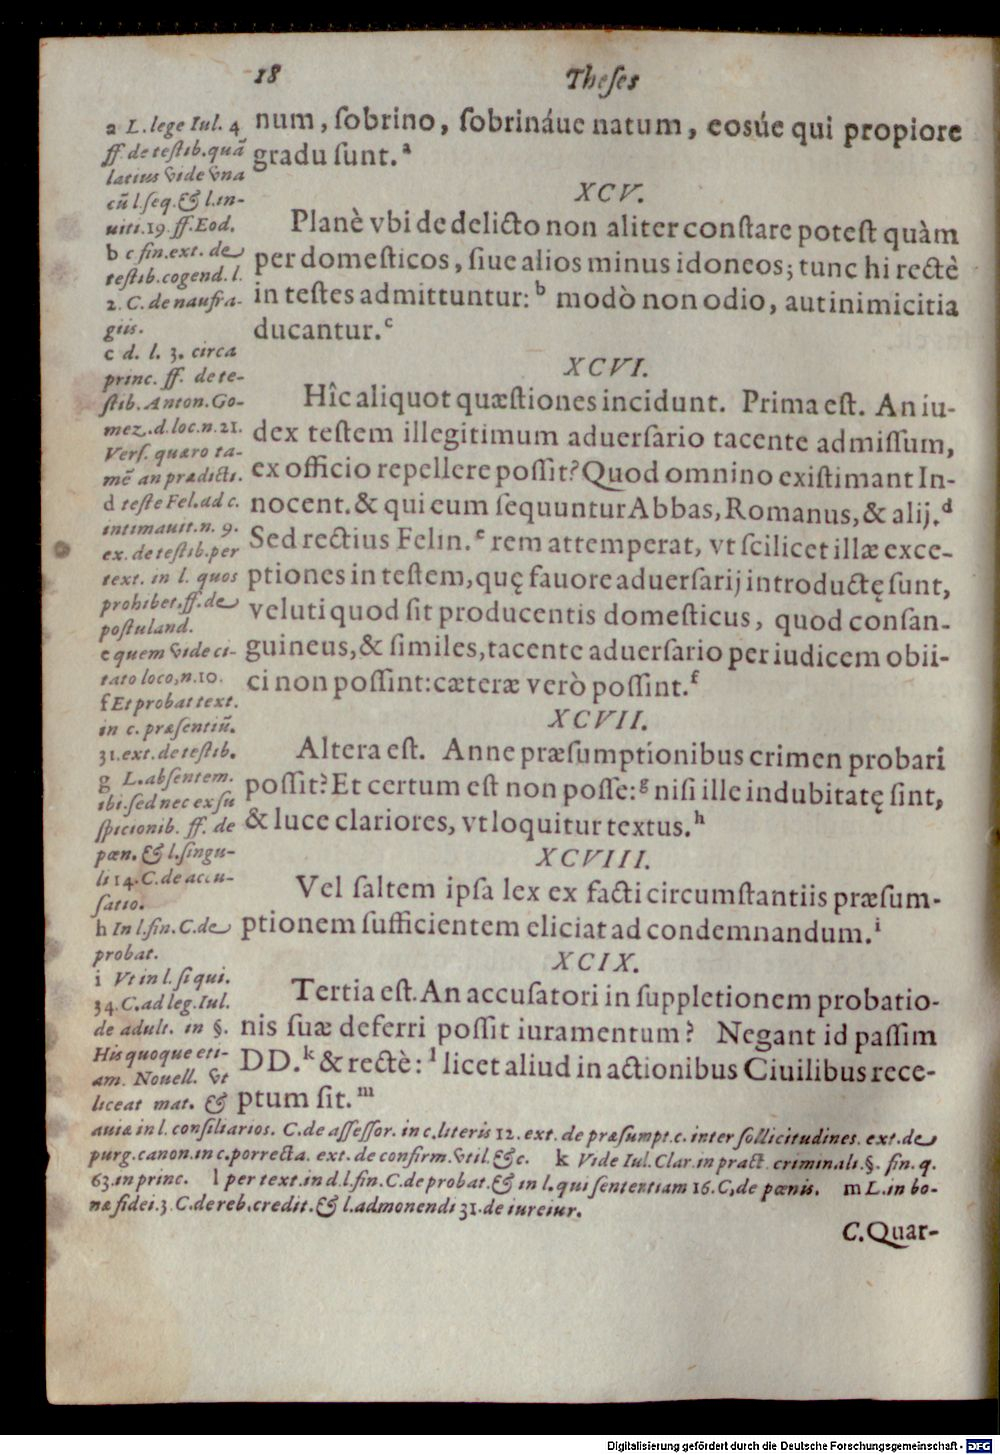 18
Theses
num, ſobrino, ſobrináue natum, eosúe qui propiore
gradu ſunt.ᵃ
XCV.
Planè vbi de delicto non aliter conſtare poteſt quàm
per domeſticos, ſiue alios minus idoneos; tunc hi rectè
in teſtes admittuntur:ᵇ modò non odio, aut inimicitia
ducantur.ᶜ
XCVI.
Hîc aliquot quæſtiones incidunt. Prima eſt. An iu-
dex teſtem illegitimum aduerſario tacente admiſſum,
ex officio repellere poſſit? Quod omnino exiſtimant In-
nocent. & qui eum ſequuntur Abbas, Romanus, & alij.ᵈ
Sed rectius Felin.ᵉ rem attemperat, vt ſcilicet illæ exce-
ptiones in teſtem, quę fauore aduerſarij introductę ſunt,
veluti quod ſit producentis domeſticus, quod conſan-
guineus, & ſimiles, tacente aduerſario per iudicem obii-
ci non poſſint: cæteræ verò poſſint.ᶠ
XCVII.
Altera eſt. Anne præſumptionibus crimen probari
poſſit? Et certum eſt non poſſe:ᵍ niſi ille indubitatę ſint,
& luce clariores, vt loquitur textus.ʰ
XCVIII.
Vel ſaltem ipſa lex ex facti circumſtantiis præſum-
ptionem ſufficientem eliciat ad condemnandum.ⁱ
XCIX.
Tertia eſt. An accuſatori in ſuppletionem probatio-
nis ſuæ deferri poſſit iuramentum? Negant id paſſim
DD.ᵏ & rectè:ˡ licet aliud in actionibus Ciuilibus rece-
ptum ſit.ᵐ
a L. lege Iul. 4
ff. de teſtib. quā
latius vide vna
cū l. ſeq. & l. in-
uiti. 19. ff. Eod.
b c fin. ext. de
teſtib. cogend. l.
2. C. de naufra-
giis.
c d. l. 3. circa
princ. ff. de te-
ſtib. Anton. Go-
mez. d. loc. n. 21.
Verſ. quæro ta-
mē an prædicti.
d teſte Fel. ad c.
intimauit. n. 9.
ex. de teſtib. per
text. in l. quos
prohibet. ff. de
poſtuland.
e quem vide ci-
tato loco, n. 10.
f Et probat text.
in c. præſentiū.
31. ext. de teſtib.
g L. abſentem.
ibi. ſed nec ex ſu
ſpicionib. ff. de
pœn. & l. ſingu-
li 14. C. de accu-
ſatio.
h In l. fin. C. de
probat.
i Vt in l. ſi qui.
34. C. ad leg. Iul.
de adult. in §.
His quoque eti-
am. Nouell. vt
liceat mat. &
auiæ in l. conſiliarios. C. de aſſeſſor. in c. literis 12. ext. de præſumpt. c. inter ſollicitudines. ext. de
purg. canon. in c. porrecta. ext. de confirm. vtil. &c. k Vide Iul. Clar. in pract. criminali. §. fin. q.
63. in princ. l per text. in d. l. fin. C. de probat. & in l. qui ſententiam 16. C. de pœnis. m L. in bo-
næ fidei. 3. C. de reb. credit. & l. admonendi 31. de iureiur.
C. Quar-
Digitalisierung gefördert durch die Deutsche Forschungsgemeinschaft - DFG